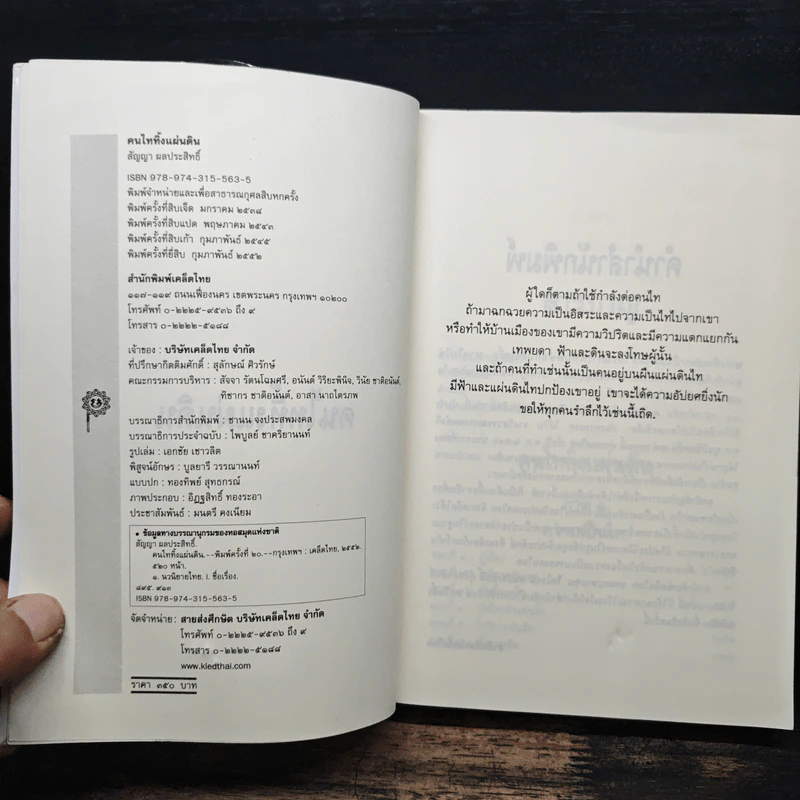 คนไททิ้งแผ่นดิน
สัญญา ผลประสิทธิ์
ISBN 978-974-315-563-5
พิมพ์จำหน่ายและเพื่อสาธารณกุศลสิบหกครั้ง
พิมพ์ครั้งที่สิบเจ็ด มกราคม ๒๕๓๘
พิมพ์ครั้งที่สิบแปด พฤษภาคม ๒๕๔๓
พิมพ์ครั้งที่สิบเก้า กุมภาพันธ์ ๒๕๔๕
พิมพ์ครั้งที่ยี่สิบ กุมภาพันธ์ ๒๕๕๒
สำนักพิมพ์เคล็ดไทย
๑๑๗-๑๑๙ ถนนเฟื่องนคร เขตพระนคร กรุงเทพฯ ๑๐๒๐๐
โทรศัพท์ ๐-๒๒๒๕-๙๕๓๖ ถึง ๙
โทรสาร ๐-๒๒๒๒-๕๑๘๘
เจ้าของ : บริษัทเคล็ดไทย จำกัด
ที่ปรึกษากิตติมศักดิ์ : สุลักษณ์ ศิวรักษ์
คณะกรรมการบริหาร : สัจจา รัตนโฉมศรี, อนันต์ วิริยะพินิจ, วินัย ชาติอนันต์,
ทิชากร ชาติอนันต์, อาสา นาถไตรภพ
บรรณาธิการสำนักพิมพ์ : ชานน จงประสพมงคล
บรรณาธิการประจำฉบับ : ไพบูลย์ ชาครียานนท์
รูปเล่ม : เอกชัย เชาวลิต
พิสูจน์อักษร : บูลยารี วรรณานนท์
แบบปก : ทองทิพย์ สุทธกรณ์
ภาพประกอบ : อิฏฐสิทธิ์ ทองระอา
ประชาสัมพันธ์ : มนตรี คงเนียม
• ข้อมูลทางบรรณานุกรมของหอสมุดแห่งชาติ
สัญญา ผลประสิทธิ์.
คนไททิ้งแผ่นดิน.--พิมพ์ครั้งที่ ๒๐.--กรุงเทพฯ : เคล็ดไทย, ๒๕๕๒.
๕๒๐ หน้า.
๑. นวนิยายไทย. I. ชื่อเรื่อง.
๘๙๕. ๙๑๓
ISBN 978-974-315-563-5
จัดจำหน่าย: สายส่งศึกษิต บริษัทเคล็ดไทย จำกัด
โทรศัพท์ ๐-๒๒๒๕-๙๕๓๖ ถึง ๙
โทรสาร ๐-๒๒๒๒-๕๑๘๘
www.kledthai.com
ราคา ๓๕๐ บาท
ผู้ใดก็ตามถ้าใช้กำลังต่อคนไท
ถ้ามาฉกฉวยความเป็นอิสระและความเป็นไทไปจากเขา
หรือทำให้บ้านเมืองของเขามีความวิปริตและมีความแตกแยกกัน
เทพยดา ฟ้าและดินจะลงโทษผู้นั้น
และถ้าคนที่ทำเช่นนั้นเป็นคนอยู่บนผืนแผ่นดินไท
มีฟ้าและแผ่นดินไทปกป้องเขาอยู่ เขาจะได้ความอัปยศยิ่งนัก
ขอให้ทุกคนรำลึกไว้เช่นนี้เถิด.